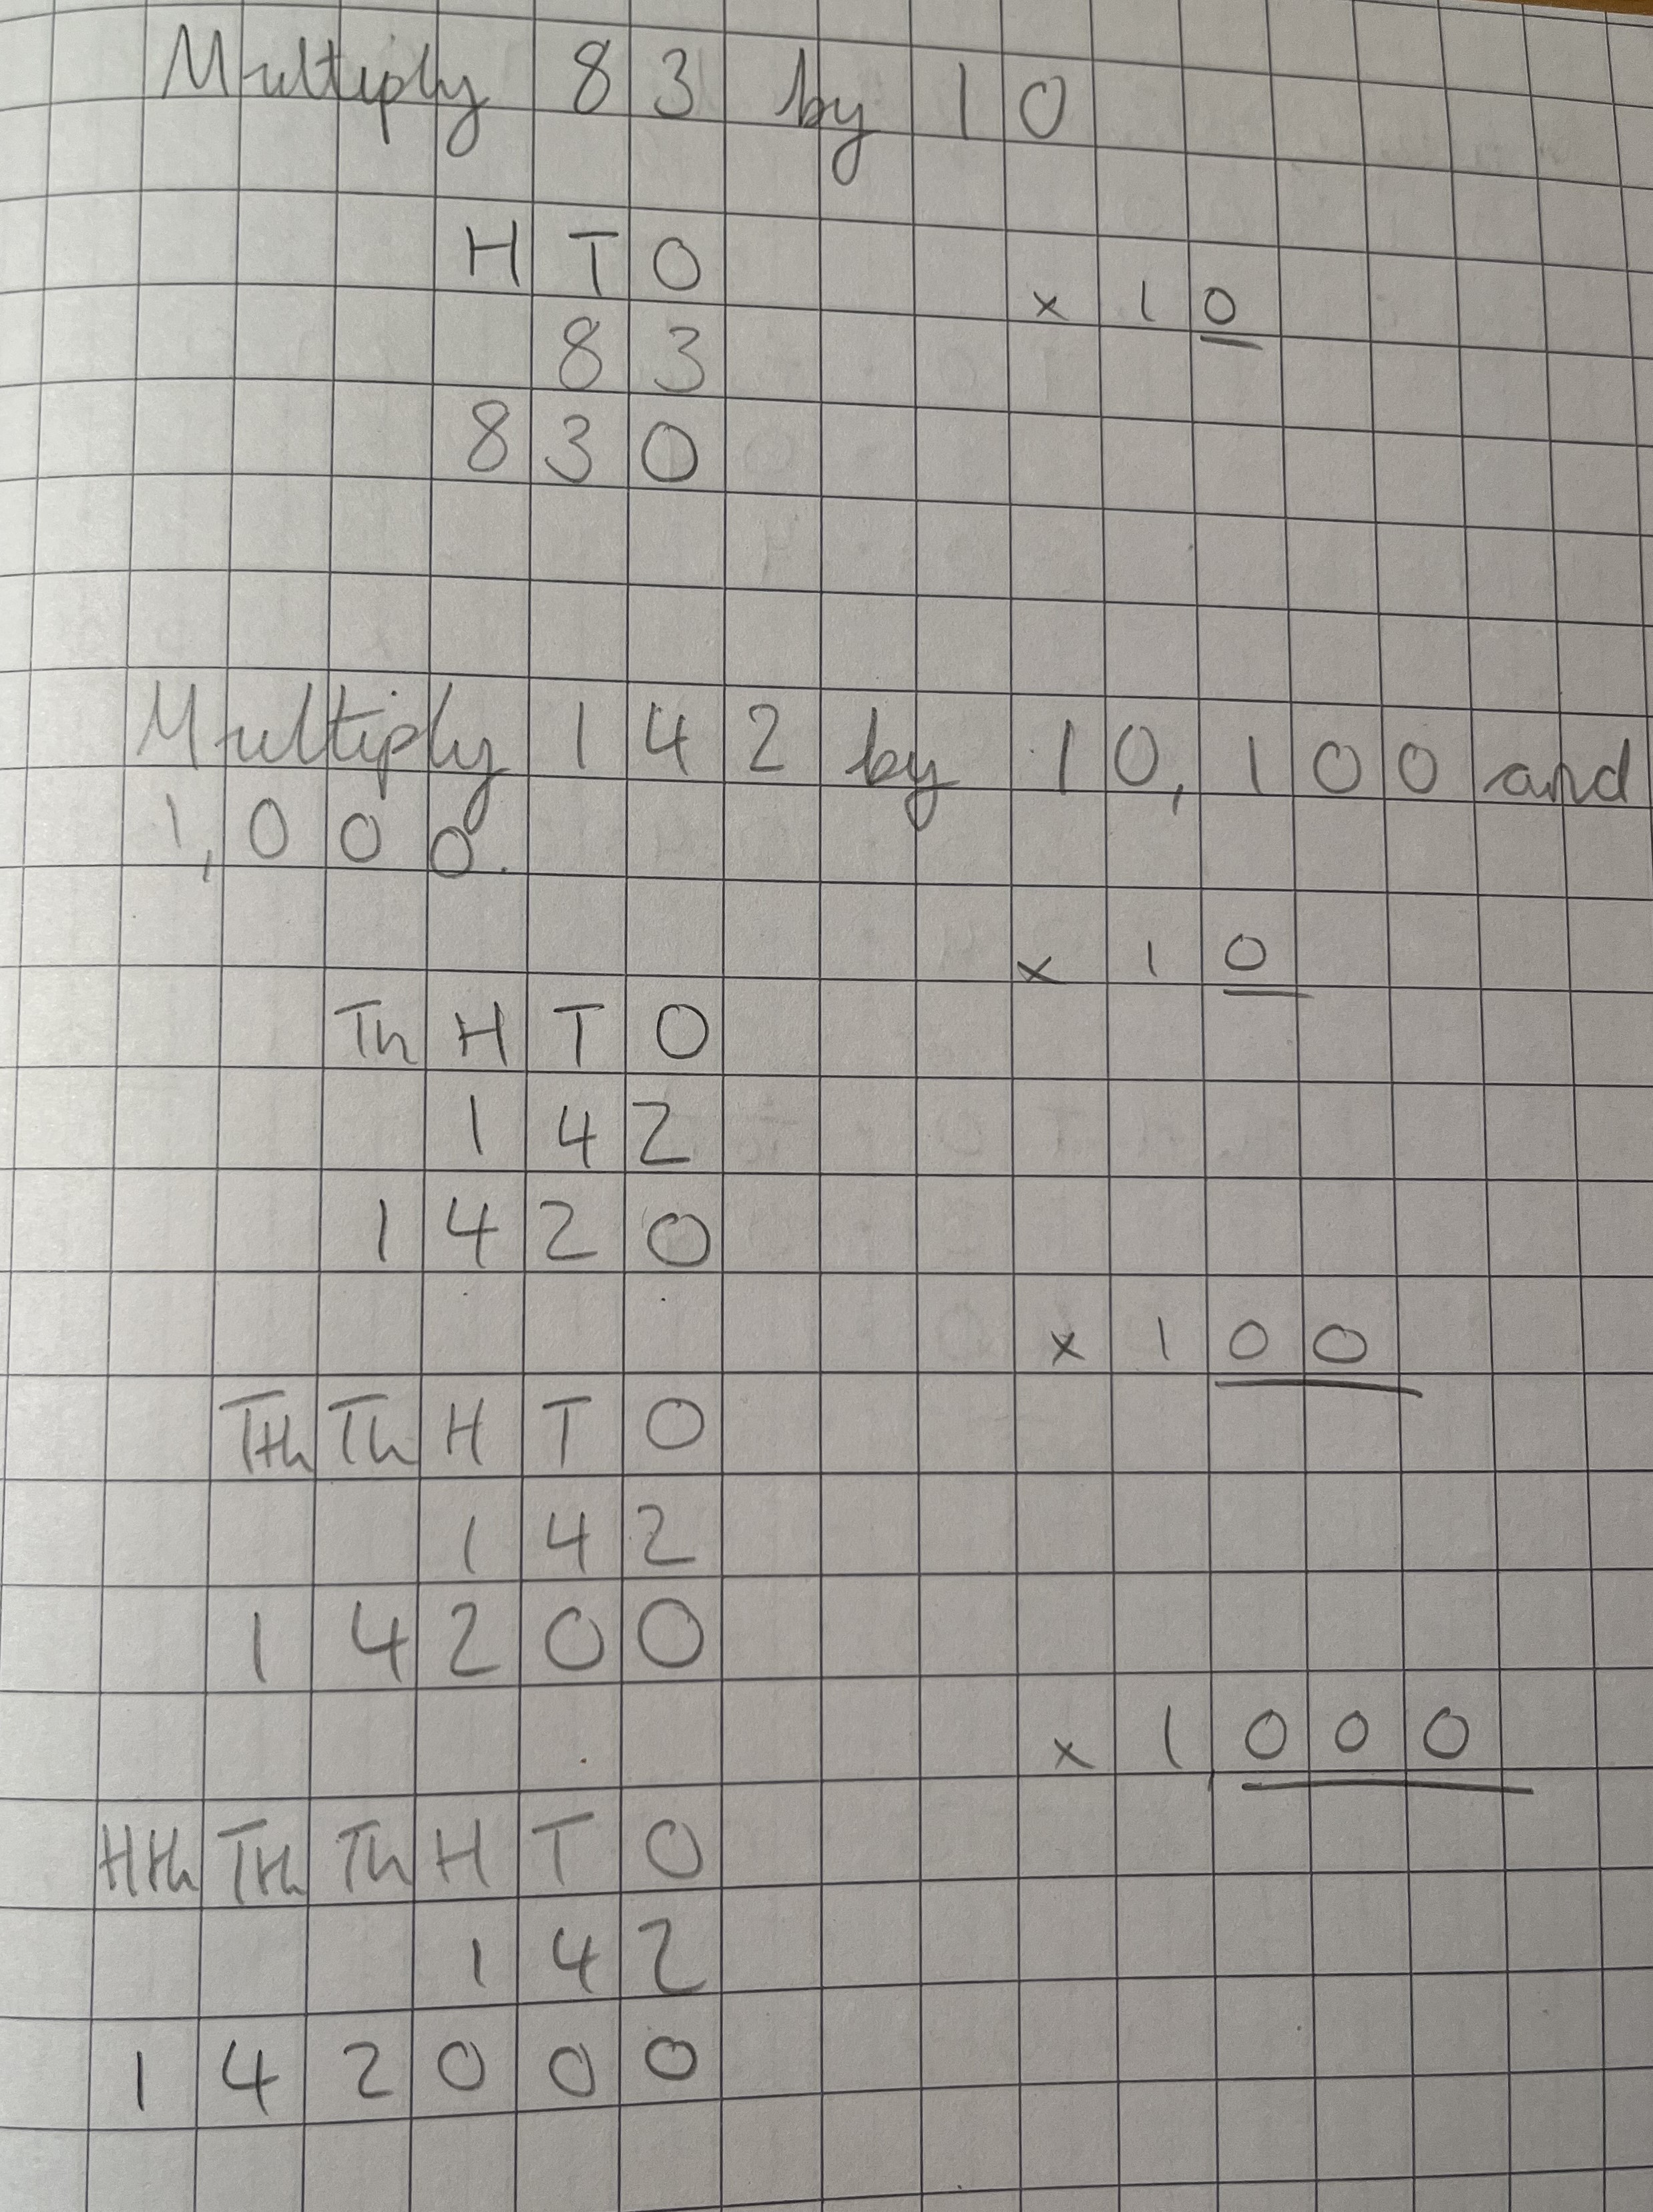 Multiply 83 by 10
H T O
× 10
8 3
8 3 0
Multiply 142 by 10, 100 and
1,000.
× 10
Th H T O
1 4 2
1 4 2 0
× 100
TTh Th H T O
1 4 2
1 4 2 0 0
× 1,000
HTh TTh Th H T O
1 4 2
1 4 2 0 0 0